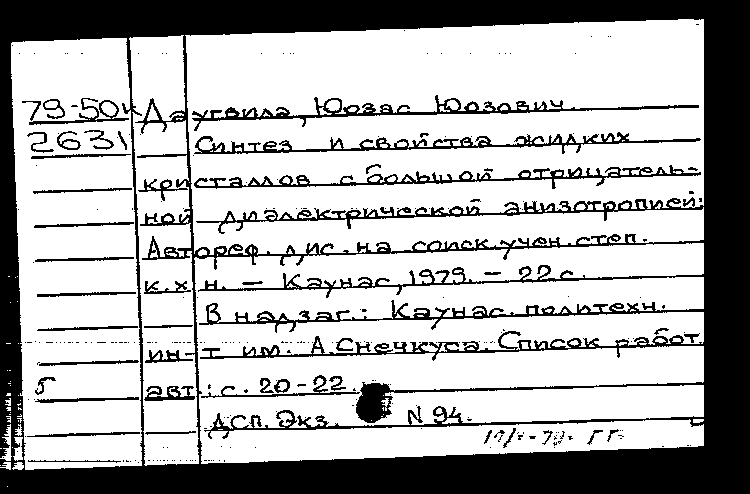 79-50к Даугвила, Юозас Юозович
2631 Синтез и свойства жидких
кристаллов с большой отрицатель-
ной диэлектрической анизотропией:
Автореф. дис. на соиск. учен. степ.
к. х. н. — Каунас, 1979. — 22 с.
В надзаг.: Каунас. политехн.
ин-т им. А. Снечкуса. Список работ
5 авт.: с. 20-22.
ДСП. Экз. N 94.